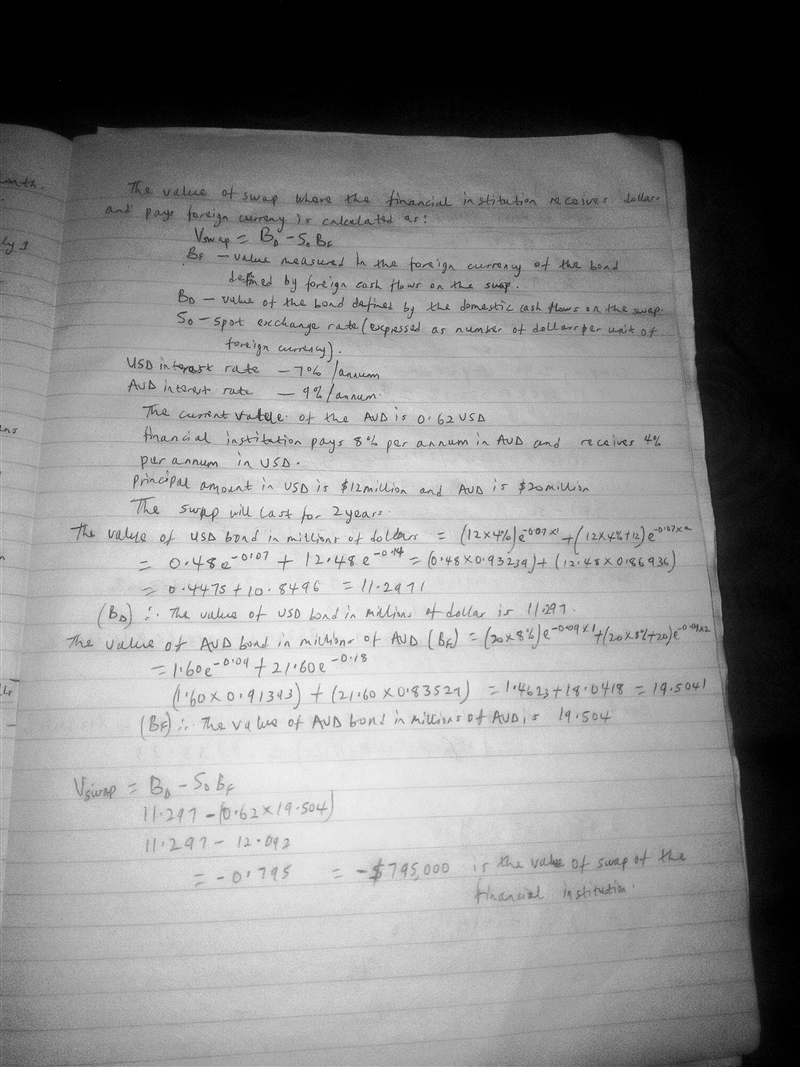 onth.
ly 1
The value of swap where the financial institution receives dollars
and pays foreign currency is calculated as:
Vswap = BD - S0 BF
BF - value measured in the foreign currency of the bond
defined by foreign cash flows on the swap.
BD - value of the bond defined by the domestic cash flows on the swap.
S0 - spot exchange rate (expressed as number of dollars per unit of
foreign currency).
USD interest rate - 7% /annum
AUD interest rate - 9% /annum.
The current value of the AUD is 0.62 USD
financial institution pays 8% per annum in AUD and receives 4%
per annum in USD.
principal amount in USD is $12 million and AUD is $20 million
The swap will last for 2 years.
The value of USD bond in millions of dollars = (12×4%)e^-0.07×1 + (12×4%+12)e^-0.07×2
= 0.48e^-0.07 + 12.48e^-0.14 = (0.48×0.93239) + (12.48×0.86936)
= 0.4475 + 10.8496 = 11.2971
(BD) ∴ The value of USD bond in millions of dollar is 11.297.
The value of AUD bond in millions of AUD (BF) = (20×8%)e^-0.09×1 + (20×8%+20)e^-0.09×2
= 1.60e^-0.09 + 21.60e^-0.18
(1.60×0.91393) + (21.60×0.83527) = 1.4623 + 18.0418 = 19.5041
(BF) ∴ The value of AUD bond in millions of AUD is 19.504
Vswap = BD - S0 BF
11.297 - (0.62×19.504)
11.297 - 12.092
= -0.795 = -$795,000 is the value of swap of the
financial institution.